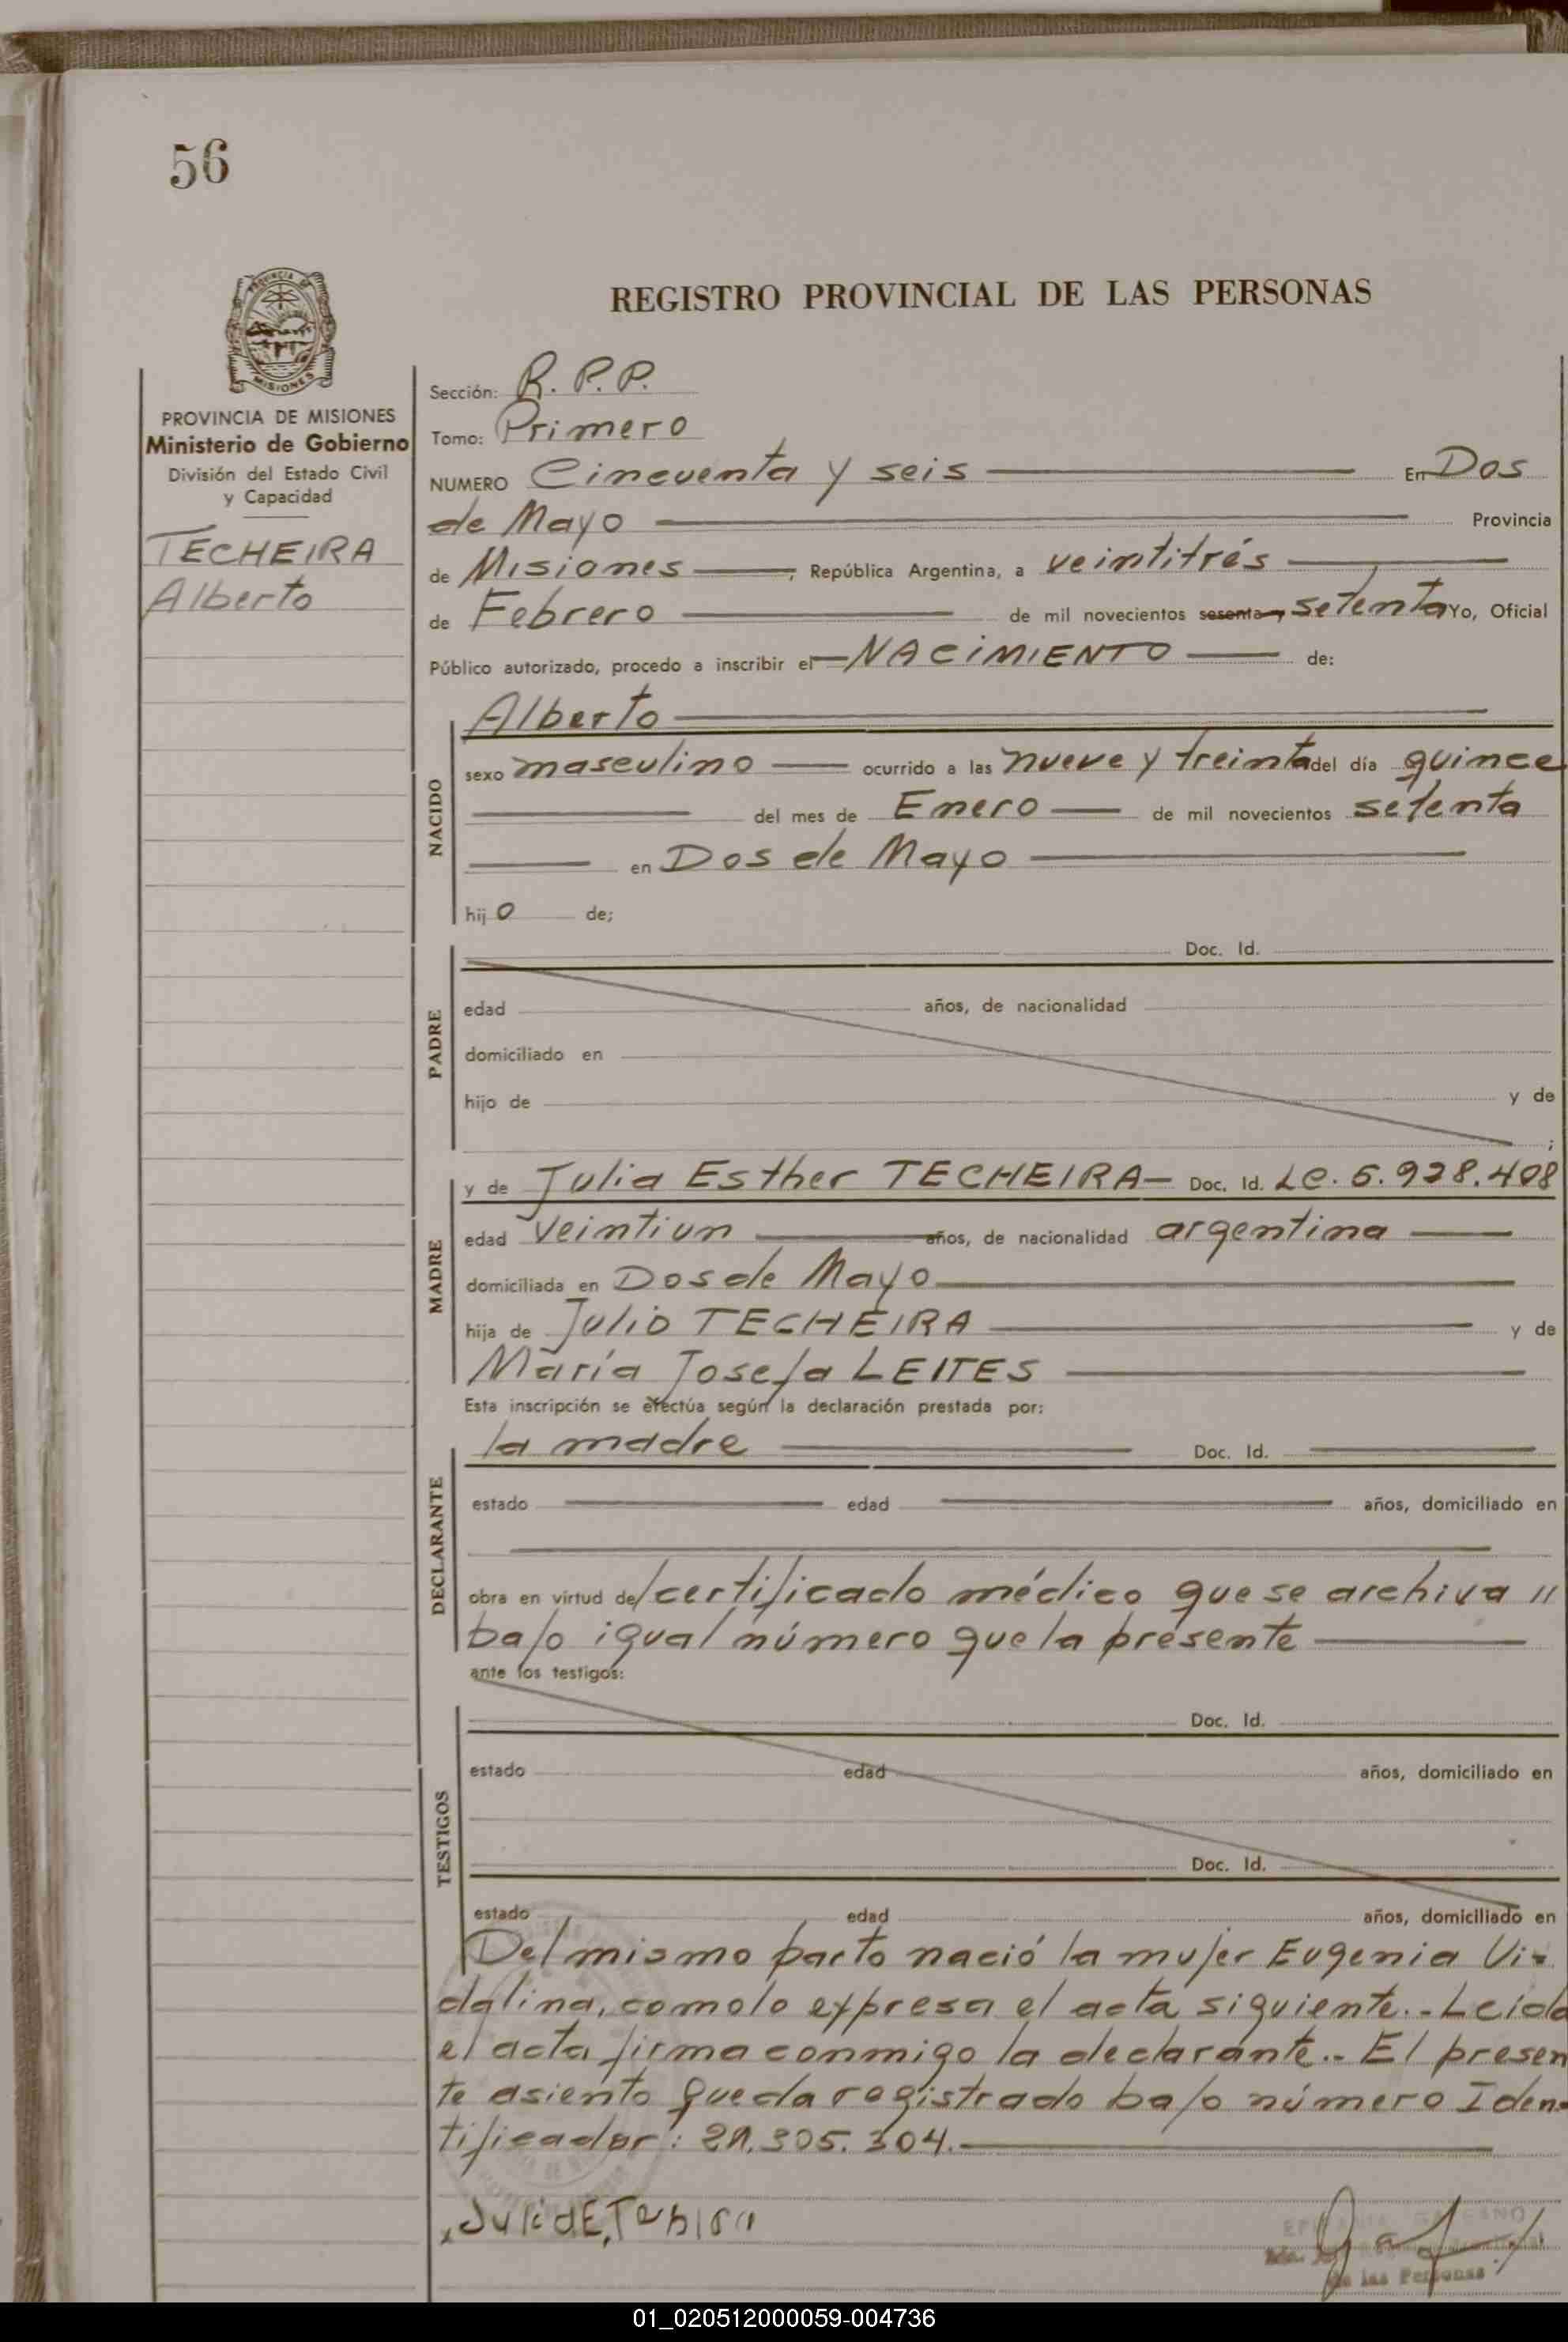 56
REGISTRO PROVINCIAL DE LAS PERSONAS
PROVINCIA DE
MISIONES
PROVINCIA DE MISIONES
Ministerio de Gobierno
División del Estado Civil
y Capacidad
TECHEIRA
Alberto
Sección: R. P. P.
Tomo: Primero
NUMERO Cincuenta y seis En Dos
de Mayo Provincia
de Misiones, República Argentina, a veintitrés
de Febrero de mil novecientos sesenta y setenta Yo, Oficial
Público autorizado, procedo a inscribir el NACIMIENTO de:
NACIDO
Alberto
sexo masculino ocurrido a las nueve y treinta del día quince
del mes de Enero de mil novecientos setenta
en Dos de Mayo
hijo de;
PADRE
Doc. Id.
edad años, de nacionalidad
domiciliado en
hijo de y de
;
MADRE
y de Julia Esther TECHEIRA— Doc. Id. LC. 6.928.408
edad veintiun años, de nacionalidad argentina
domiciliada en Dos de Mayo
hija de Julio TECHEIRA y de
María Josefa LEITES
Esta inscripción se efectúa según la declaración prestada por:
DECLARANTE
la madre Doc. Id.
estado edad años, domiciliado en
obra en virtud de certificado médico que se archiva //
bajo igual número que la presente
ante los testigos:
TESTIGOS
Doc. Id.
estado edad años, domiciliado en
Doc. Id.
estado edad años, domiciliado en
Del mismo parto nació la mujer Eugenia Vi-
dalina, como lo expresa el acta siguiente.- Leída
el acta firma conmigo la declarante.- El presen
te asiento queda registrado bajo número Iden-
tificador: 21.305.304.
de las Personas
01_020512000059-004736